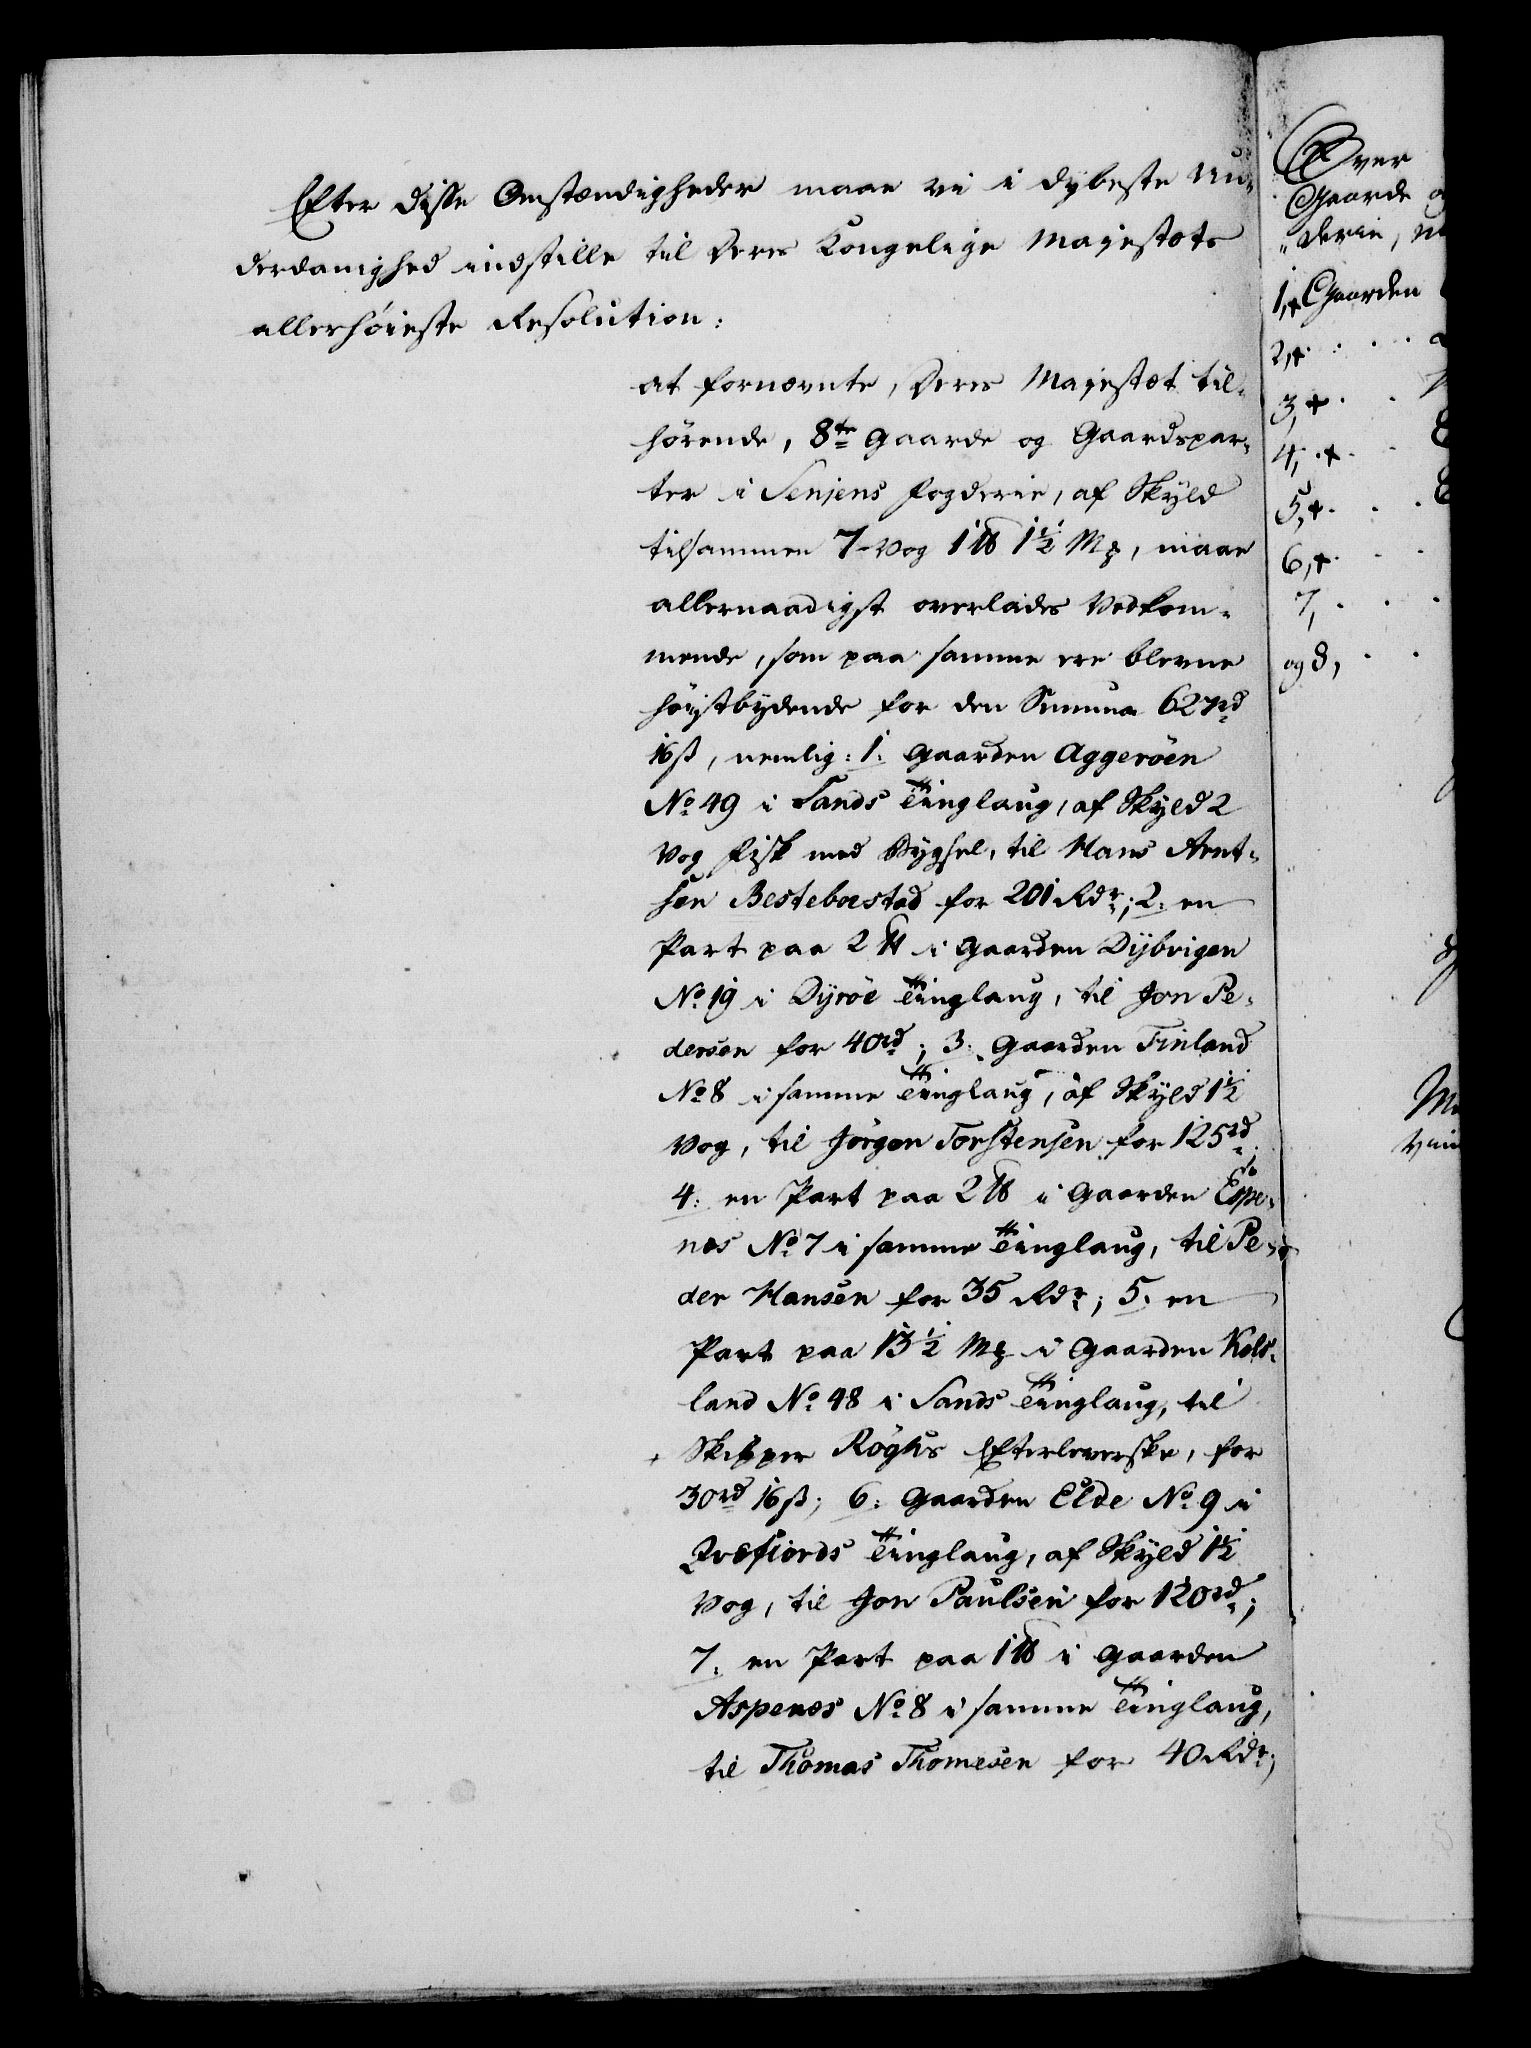 Efter disse Omstændigheder maae vi i dybeste Un-
derdanighed indstille til Deres Kongelige Majestæts
allerhöieste Resolution:
at fornævnte, Deres Majestæt til-
hörende, 8te Gaarde og Gaardspar-
ter i Senjens Fogderie, af Skyld
tilsammen 7 Vog 1 ℔ 1½ Mk, maae
allernaadigst overlades Vedkom-
mende, som paa samme ere blevne
höistbydende for den Summa 627rd
16ß, nemlig: 1: Gaarden Aggeröen
No 49 i Sands Tinglaug, af Skyld 2
Vog Fisk med Bygsel, til Hans Arnt-
sen Besteboestad for 201 Rdr; 2: en
Part paa 2 ℔ i Gaarden Dybvigen
No 19 i Dyröe Tinglaug, til Jon Pe-
dersen for 40rd; 3: Gaarden Finland
No 8 i samme Tinglaug, af Skyld 1½
Vog, til Jörgen Torstensen for 125rd;
4: en Part paa 2 ℔ i Gaarden Espe-
næs No 7 i samme Tinglaug, til Pe-
der Hansen for 35 Rdr; 5: en
Part paa 13½ Mk i Gaarden Kols-
land No 48 i Sands Tinglaug, til
Skipper Röghs Efterleverske, for
30rd 16ß; 6: Gaarden Elde No 9 i
Qvæfiords Tinglaug, af Skyld 1½
Vog, til Jon Paulsen for 120rd;
7: en Part paa 1 ℔ i Gaarden
Aspenæs No 8 i samme Tinglaug,
til Thomas Thomesen for 40 Rdr;
Over
Gaarde
derie,
1, + Gaarden
2, +
3, +
4, +
5, +
6, +
7,
og 8,